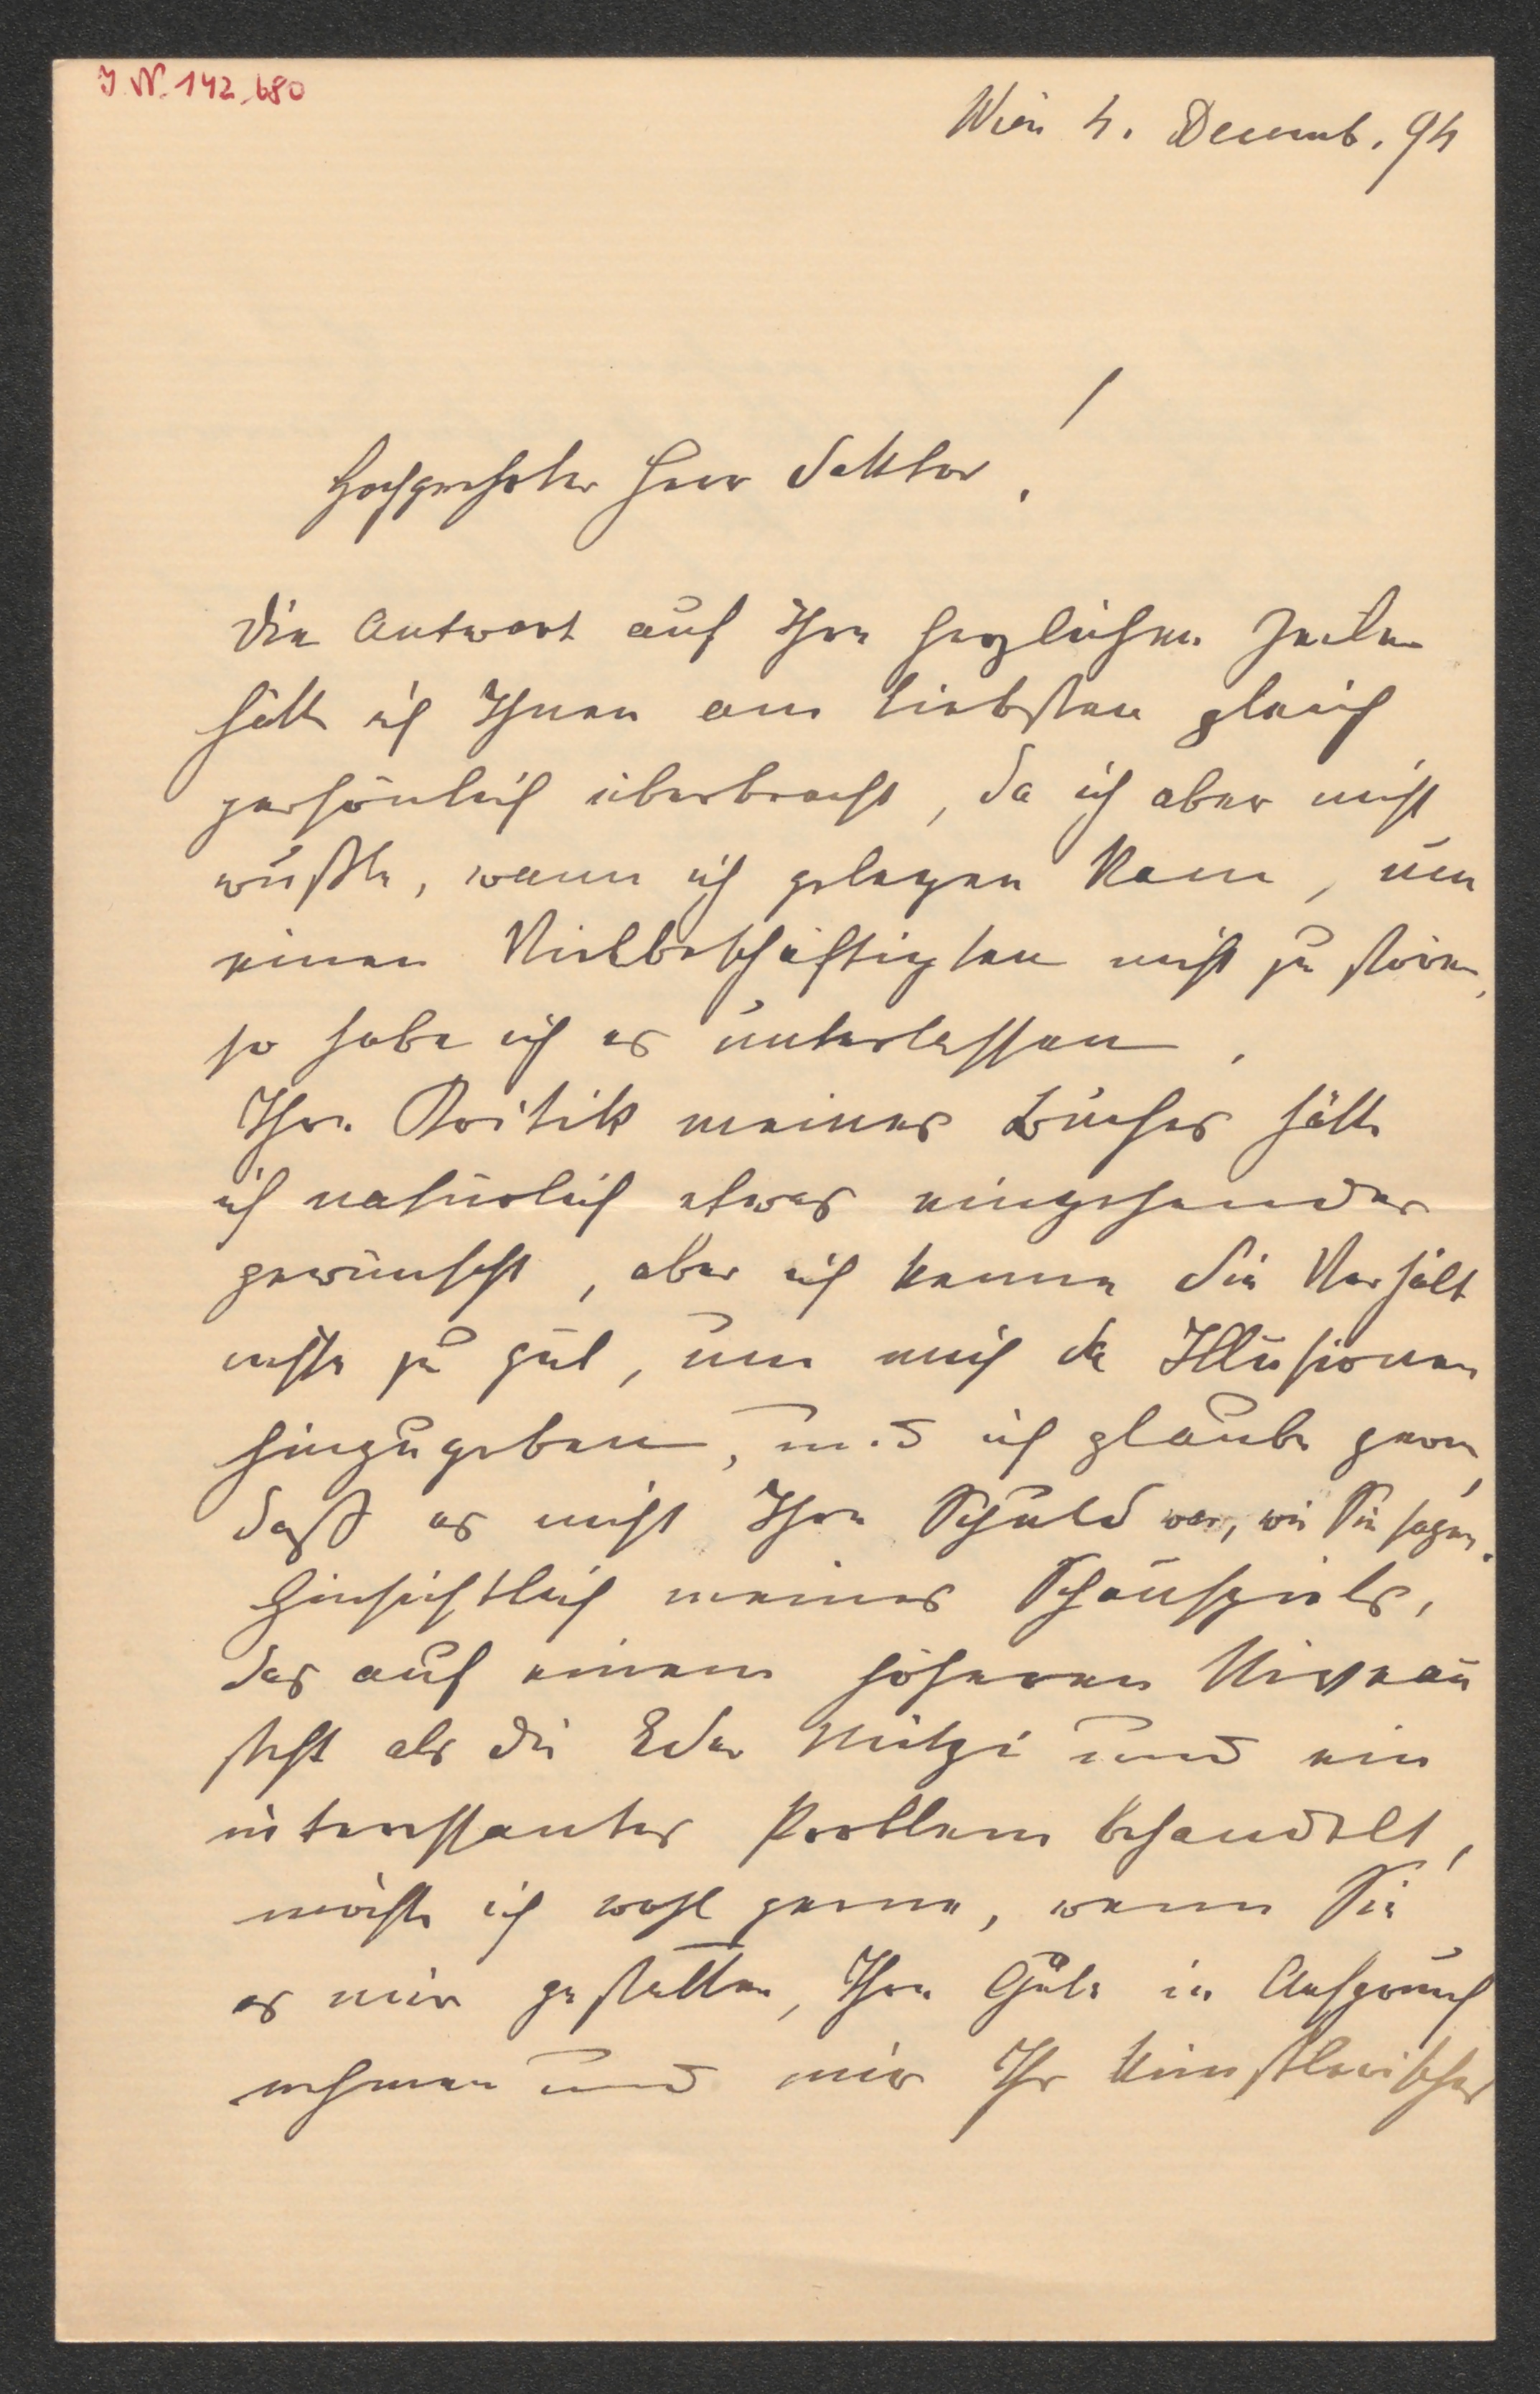 I. N. 142.680
Wien 4. Decemb. 94
Hochgeehrter Herr Doktor!
Die Antwort auf Ihre herzlichen Zeilen
hätte ich Ihnen am liebsten gleich
persönlich überbracht, da ich aber nicht
wußte, wann ich gelegen kam, um
einen Vielbeschäftigten nicht zu stören,
so habe ich es unterlassen.
Ihre Kritik meines Buches hätte
ich natürlich etwas eingehender
gewünscht, aber ich kenne die Verhält
nisse zu gut, um mich da Illusionen
hinzugeben, und ich glaube gern,
daß es nicht Ihre Schuld war, wie Sie sagen.
Hinsichtlich meines Schauspiels,
das auf einem höheren Niveau
steht als die Eder Mitzi und ein
interessantes Problem behandelt,
möchte ich wohl gerne, wenn Sie
es mir gestatten, Ihre Güte in Anspruch
nehmen und mir Ihr künstlerisches